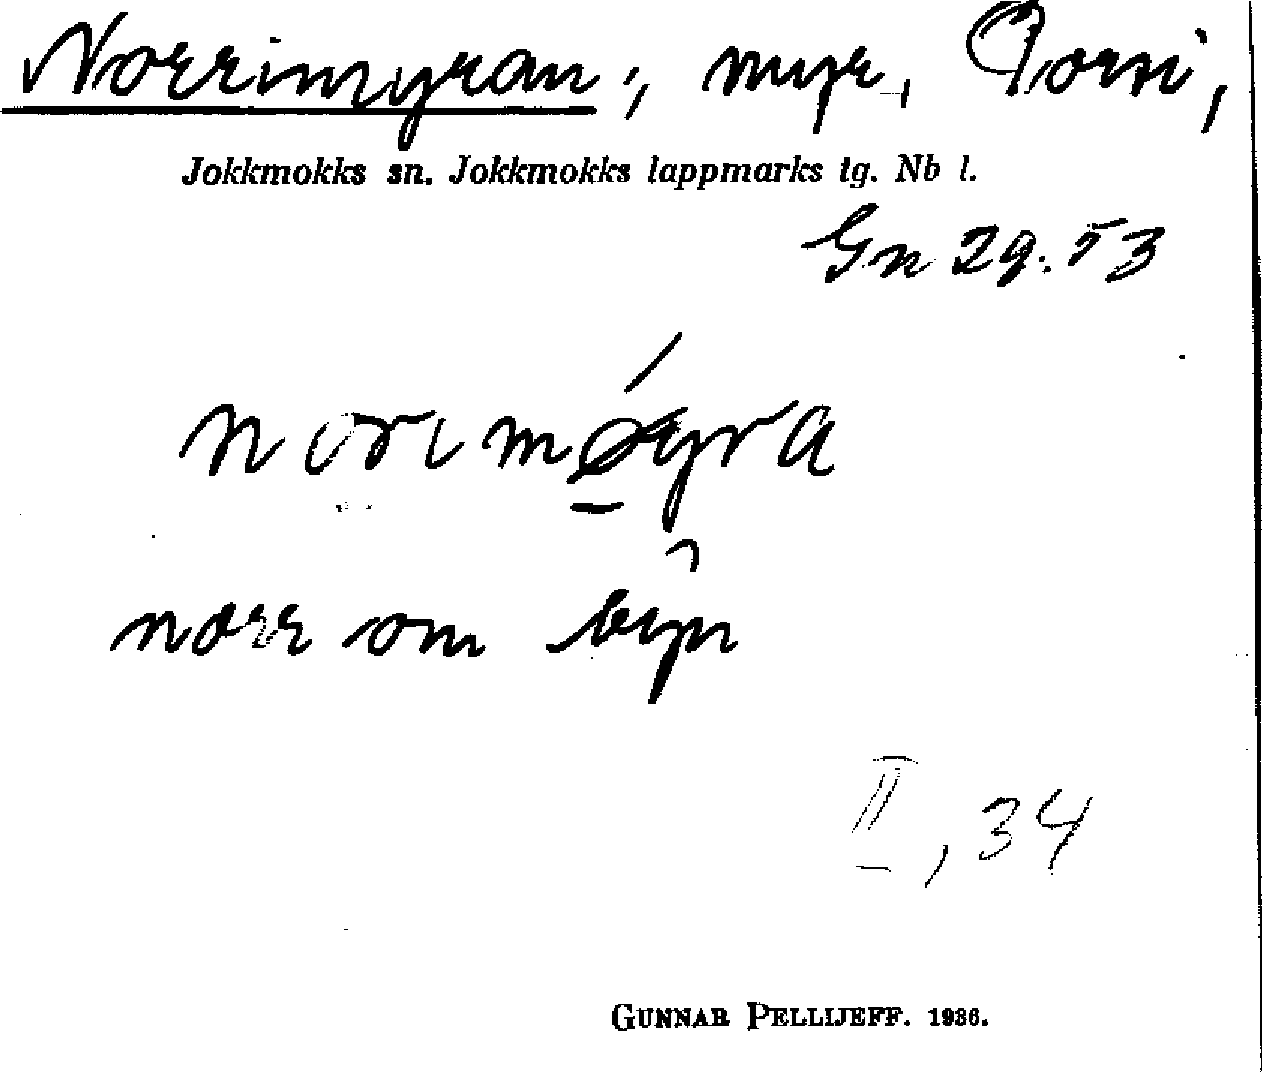 Norrimyran, myr, Porsi,
Jokkmokks sn. Jokkmokks lappmarks tg. Nb l.
Gn 29.53
norr om byn
II, 34
GUNNAR PELLIJEFF. 1936.